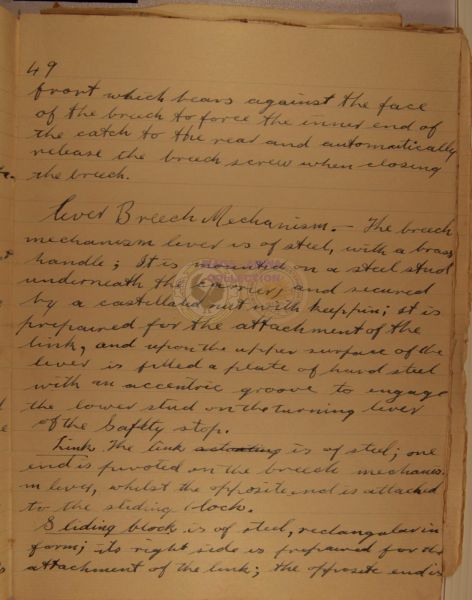 49
front which bears against the face
of the breech to force the inner end of
the catch to the rear and automaitically
release the breech screw when closing
the breech.
lever Breech Mechanism. – The breech
mechanism lever is of steel, with a brass
handle; It is mounted on a steel stud
underneath the and secured
by a castellated nut with keeppin; it is
prepaired for the attachment of the
link, and upon the upper surface of the
lever is fitted a plate of hard steel
with an accentric groove to engage
the lower stud on the turning lever
of the Safety stop.
Link. The link actuating is of steel; one
end is pivoted on the breech mechanis-
m lever, whilst the opposite end is attached
to the sliding block.
Sliding block is of steel, rectangular in
form; its right side is prepaired for the
attachment of the link; the opposite end is